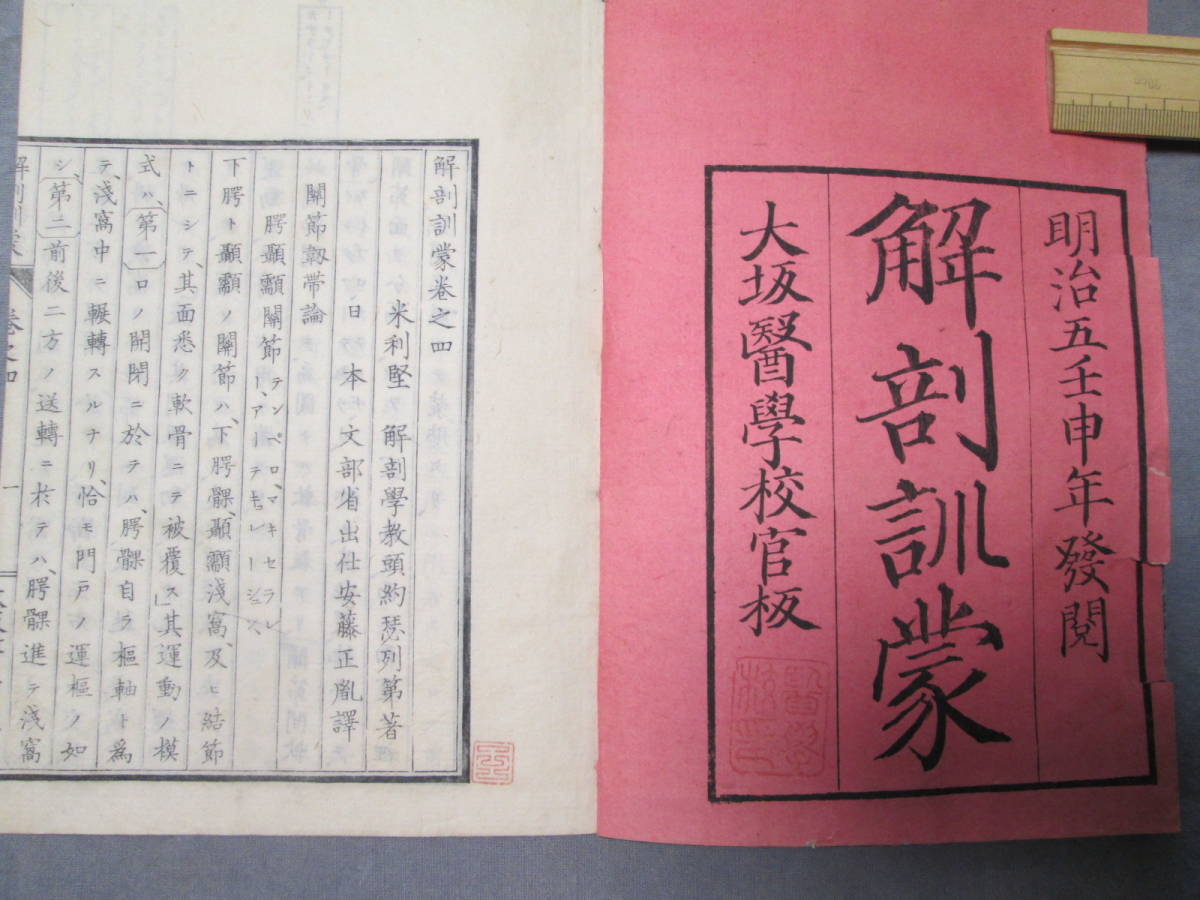 明治五壬申年發閱
解剖訓蒙
大坂醫學校官板
解剖訓蒙卷之四
米利堅 解剖學教頭約瑟列第著
日本文部省出仕安藤正胤譯
關節韌帶論
腭顳顬關節
下腭ト顳顬ノ關節ハ、下腭髁、顳顬淺窩、及ヒ結節
トニシテ、其面悉ク軟骨ニテ被覆ス其運動ノ模
式ハ、第一口ノ開閉ニ於テハ、腭髁自ラ樞軸ト爲
テ、淺窩中ニ輾轉スルナリ、恰モ門戸ノ運樞ノ如
シ、第二前後二方ノ送轉ニ於テハ、腭髁進テ淺窩
卷之四
一